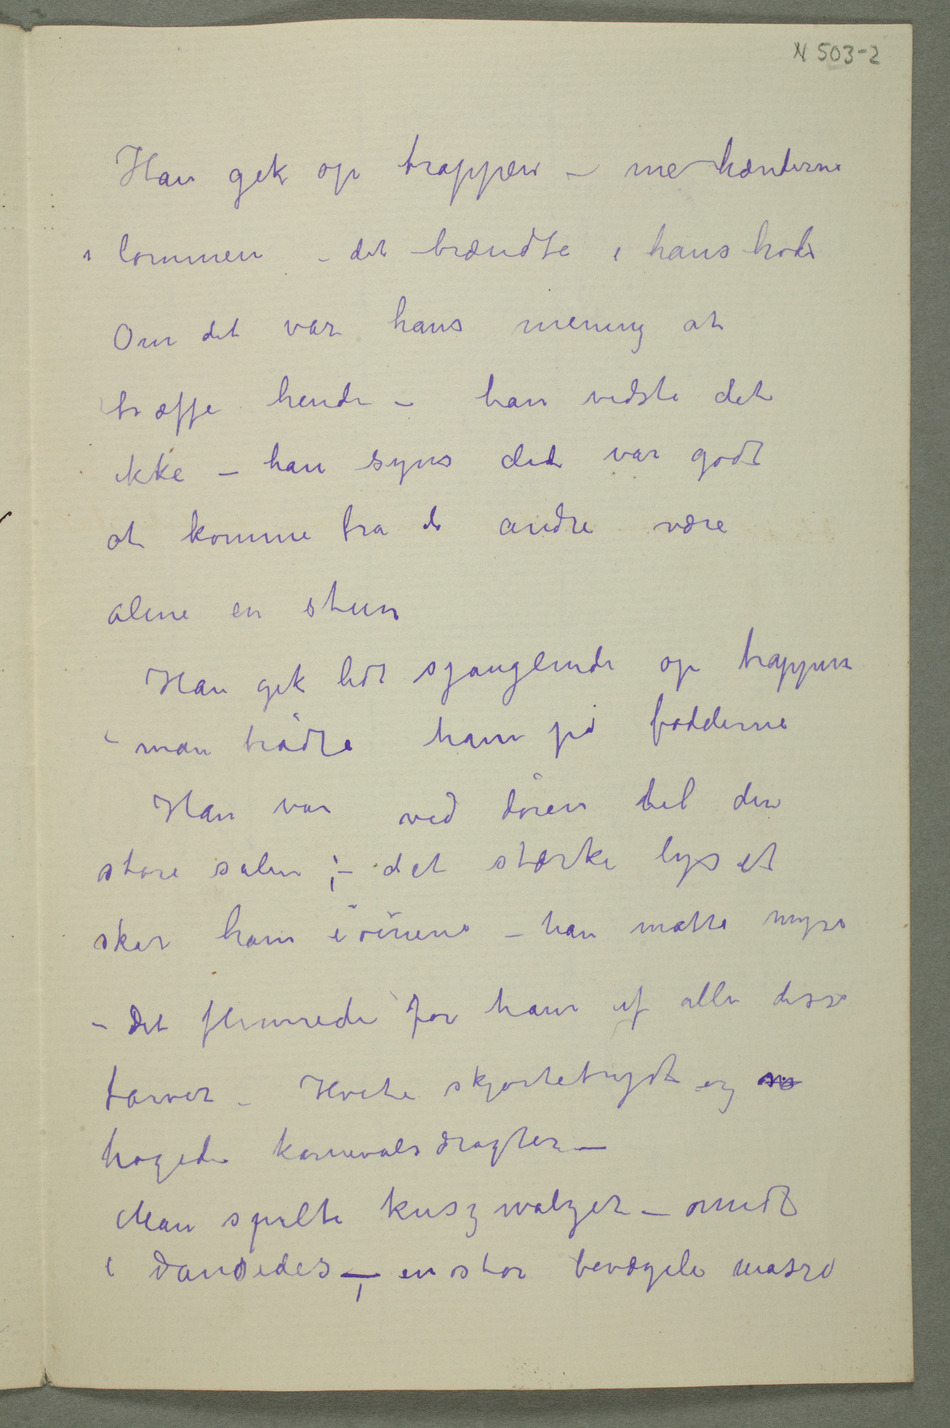 N 503-2
Han gek op trappen – me hænderne
i lommen – det brændte i hans hode
Om det var hans mening at
træffe hende – han vidste det
ikke – han syns det var godt
at komme fra de andre være
alene en stun
Han gek lidt sjanglende op trappen
– man trådte ham på fødderne
Han var ved døren til den
store salen ;– det stærke lyset
skar ham i øinene – han måtte myse
– Det flimrede for ham af alle disse
farver – Hvite skjortebryst og
brogede karnevalsdragter –
Man spilte valzer – omidt
i dansedes – en stor bevægele masse